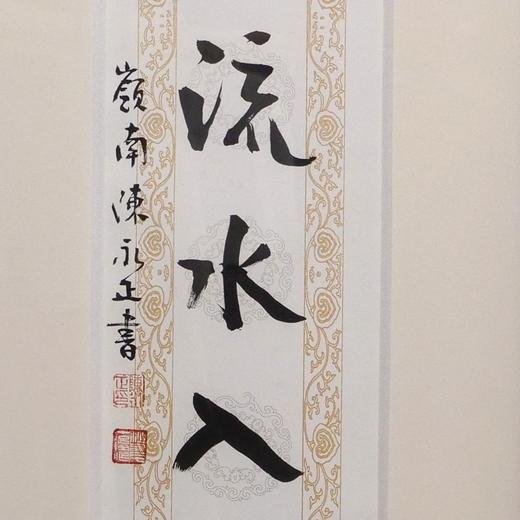 流水入
嶺南陳永正書